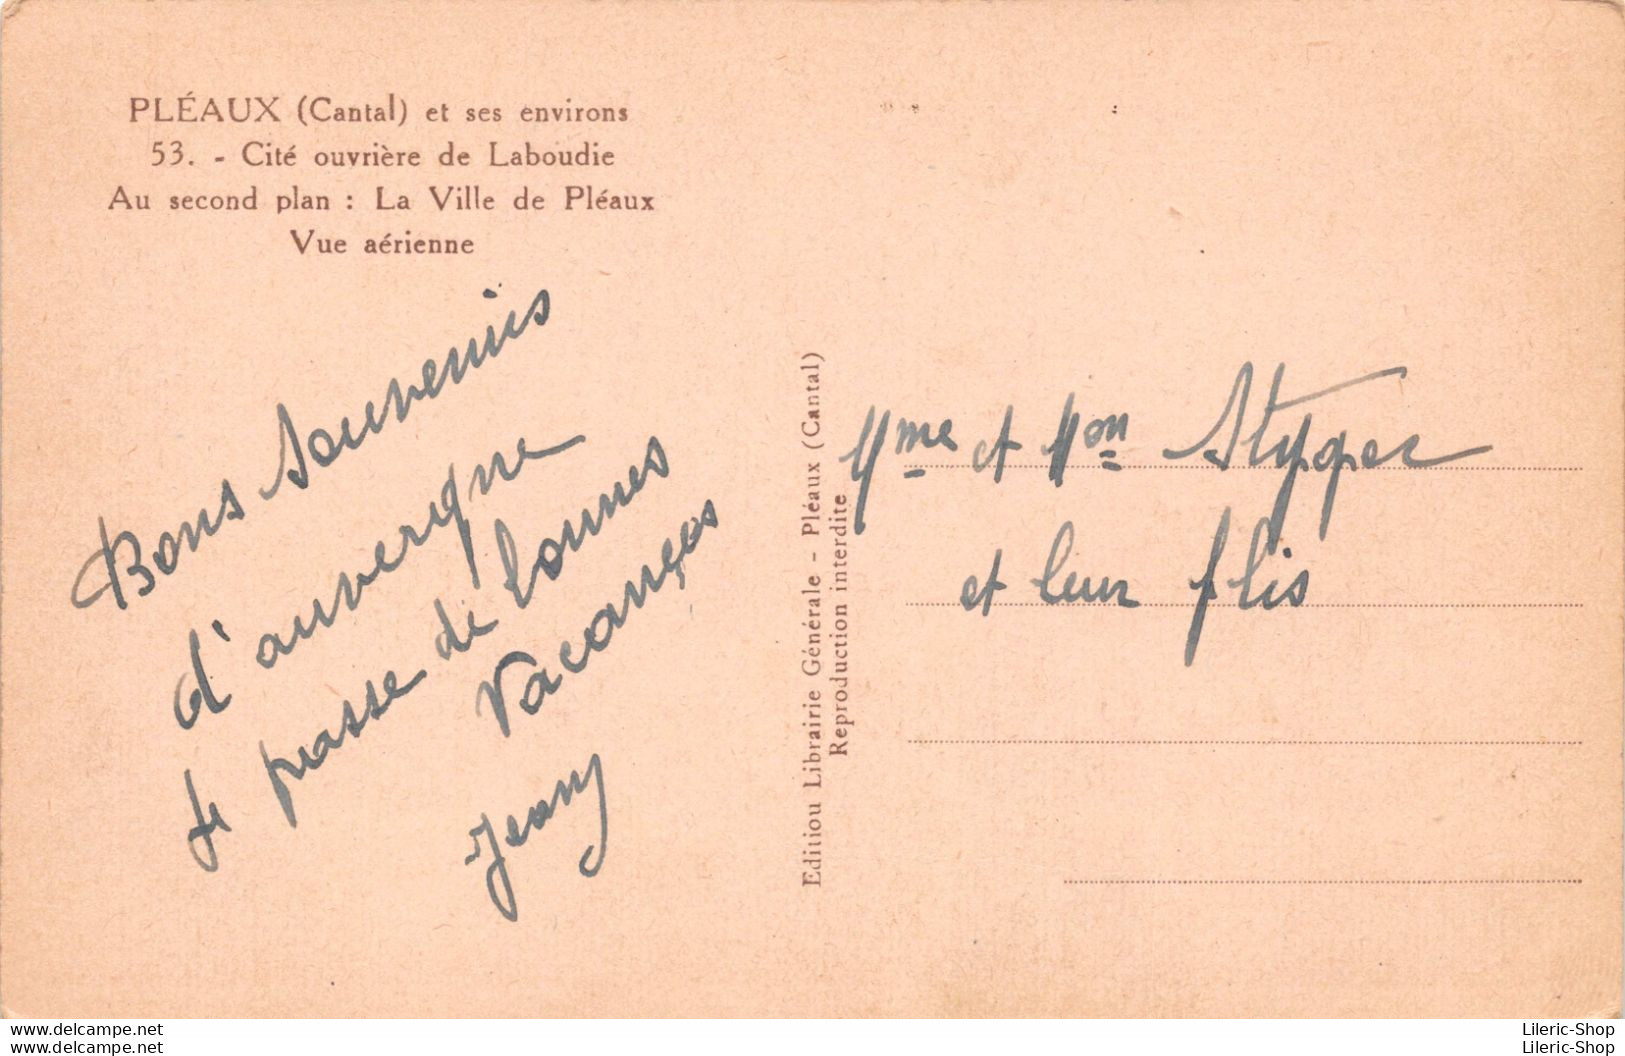 PLÉAUX (Cantal) et ses environs
53. - Cité ouvrière de Laboudie
Au second plan : La Ville de Pléaux
Vue aérienne
Bons Souvenirs
d'auvergne
Je passe de bonnes
Vacances
Jeany
Editiou Librairie Générale - Pléaux (Cantal)
Reproduction interdite
Mme et Mon
et leur flis
delcampe.net
Lileric-Shop
delcampe.net
Lileric-Shop